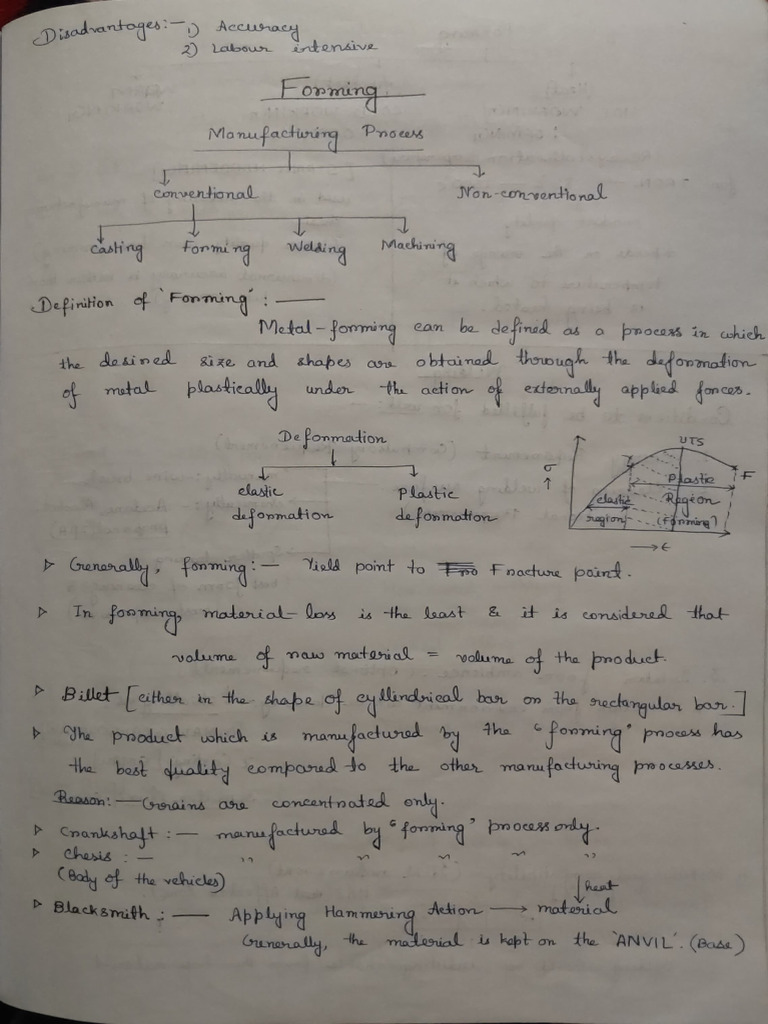 Disadvantages:- 1) Accuracy
2) Labour intensive
Forming
Manufacturing Process
conventional Non-conventional
Casting Forming Welding Machining
Definition of 'Forming' : —
Metal-forming can be defined as a process in which
the desired size and shapes are obtained through the deformation
of metal plastically under the action of externally applied forces.
Deformation
elastic deformation
plastic deformation
UTS
σ
↑
Y
F
elastic region
Plastic Region (Forming)
→ϵ
▷ Generally, forming:- Yield point to Fracture point.
▷ In forming, material-loss is the least & it is considered that
volume of raw material = volume of the product.
▷ Billet [either in the shape of cyllindrical bar or the rectangular bar.]
▷ The product which is manufactured by the "forming" process has
the best quality compared to the other manufacturing processes.
Reason:— Grains are concentrated only.
▷ Crankshaft :— manufactured by "forming" process only.
▷ Chesis :— " " " " "
(Body of the vehicles)
↓heat
▷ Blacksmith :— Applying Hammering Action → material
Generally, the material is kept on the 'ANVIL'. (Base)